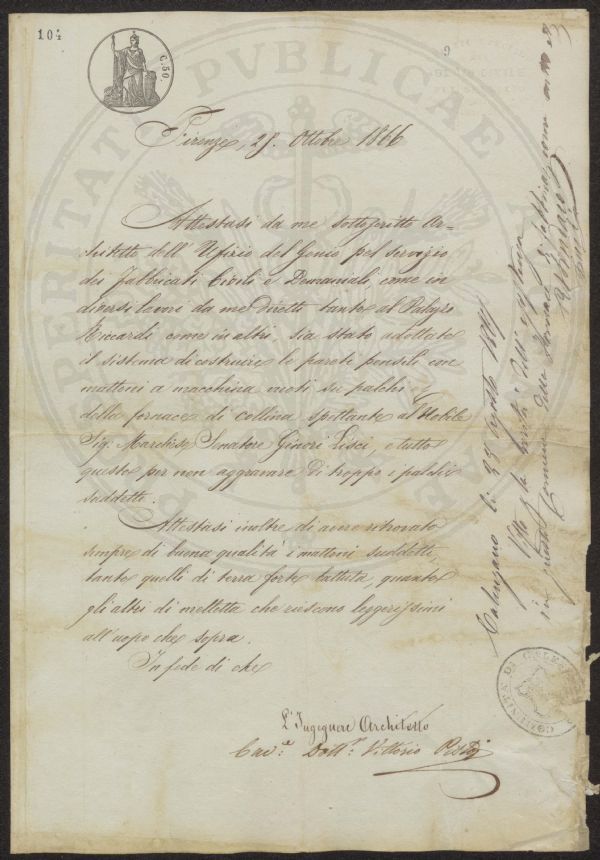 104
C. 50.
9
PVBLICAE
Firenze, 25. Ottobre 1866
Attestasi da me sottoscritto Ar-
chitetto dell' Ufizio del Genio pel servizio
dei Fabbricati Civili e Demaniali, come in
diversi lavori da me diretti tanto al Palazzo
Riccardi come in altri, sia stato adottato
il sistema di costruire le pareti pensili con
mattoni a macchina vuoti su palchi
della fornace di collina spettante al Nobile
Sig. Marchese Senatore Ginori Lisci, e tutto
questo per non aggravare di troppo i palchi
suddetti.
Attestasi inoltre di avere ritrovato
sempre di buona qualità i mattoni suddetti,
tanto quelli di terra forte battuta, quanto
gli altri di melletta che riescono leggerissimi
all'uopo che sopra.
In fede di che
L'Ingegnere Architetto
Cav.e Dott.r Vittorio
Calenzano li 23 Agosto
Visto la verità dell'
in questo Comune della
COMUNITÀ DI